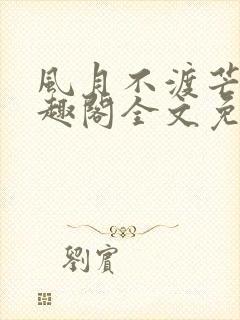 風月不渡芒
趣閣全文免
劉賓